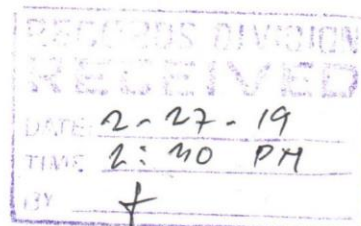 RECORDS DIVISION
RECEIVED
DATE 2-27-19
TIME 2:40 PM
BY